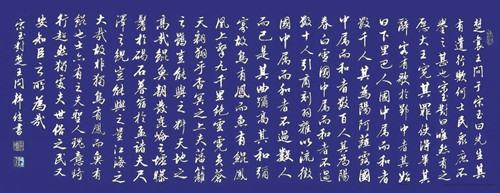 楚襄王問于宋玉曰先生其
有遺行歟何士民眾庶不
譽之甚也宋玉對曰唯然有之
願大王寬其罪使得畢其
辭客有歌於郢中者其始
曰下里巴人國中屬而和者
數千人其為陽阿薤露國
中屬而和者數百人其為陽
春白雪國中屬而和者不過
數十人引商刻羽雜以流徵
國中屬而和者不過數人
而已是其曲彌高其和彌
寡故鳥有鳳而魚有鯤鳳
凰上擊九千里絕雲霓負蒼
天翱翔乎杳冥之上夫藩籬
之鷃豈能與之料天地之
高哉鯤魚朝發崑崙之墟暴
鬐於碣石暮宿於孟諸夫尺
澤之鯢豈能與之量江海之
大哉故非獨鳥有鳳而魚有
鯤也士亦有之夫聖人瑰意琦
行超然獨處夫世俗之民又
安知臣之所為哉
宋玉對楚王問